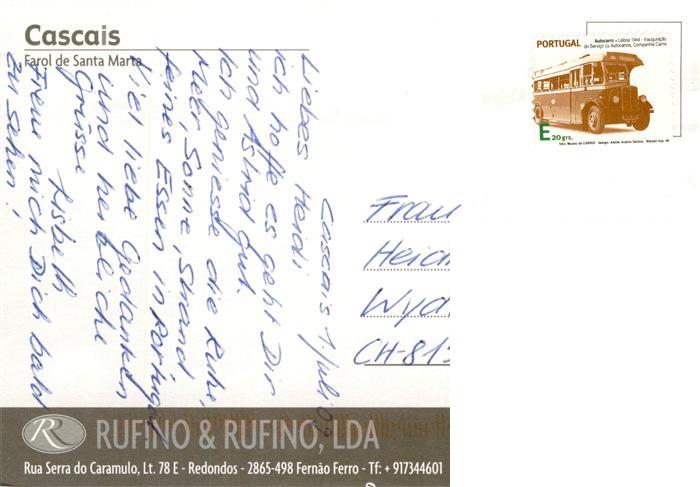 Cascais
Farol de Santa Marta
Cascais 1. Juli 09
Liebes Heidi
ich hoffe es geht Dir
und Astrid gut.
Ich geniesse die Ruhe,
Meer, Sonne, Strand
feines Essen in Portugal
Viel liebe Gedanken
und herzliche
Grüsse
Lisbeth
Freue mich Dich bald
zu sehen!
PORTUGAL
Autocarro • Lisboa 1944 - Inauguração
do Serviço de Autocarros, Companhia Carris
E 20 grs.
Frau
Heid
Wya
CH-815
RUFINO & RUFINO, LDA
Rua Serra do Caramulo, Lt. 78 E - Redondos - 2865-498 Fernão Ferro - Tf: + 917344601